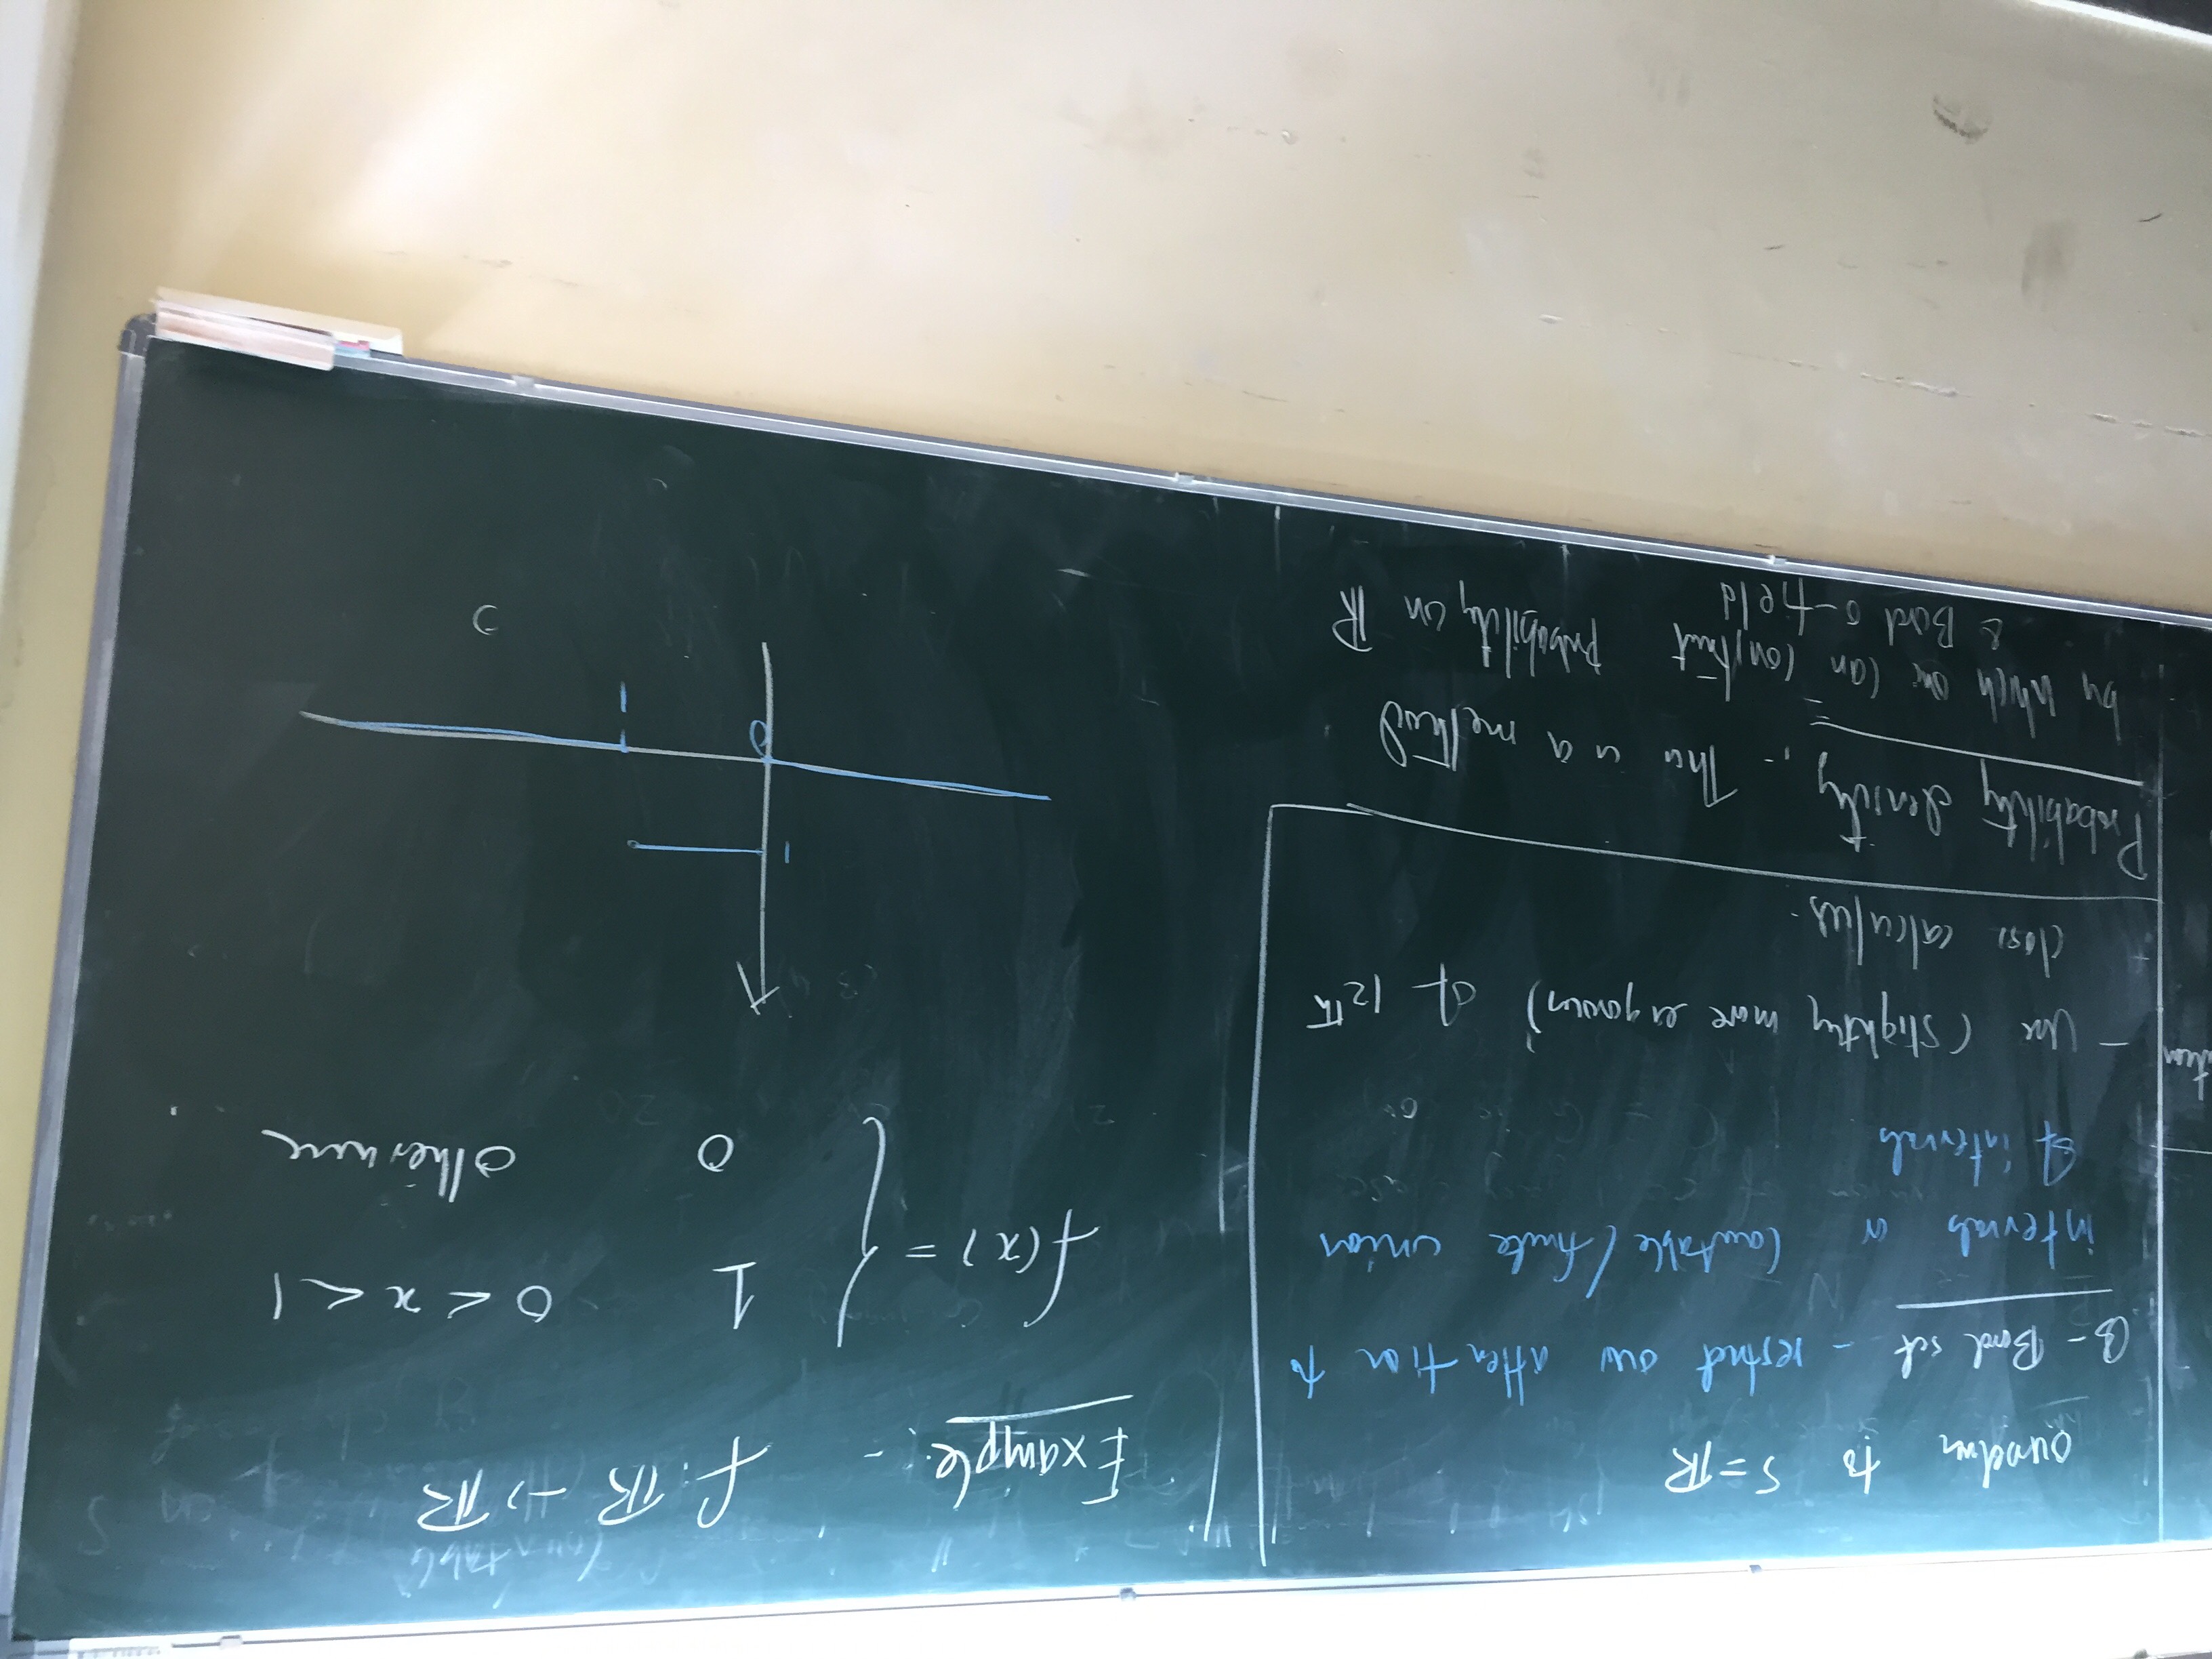 to S = ℝ
B - Borel set - restrict our attention to
intervals or countable/finite union
of intervals
- Use (slightly more rigorous) of 12th
class calculus.
Probability density :- This is a method
by which one can construct probability on ℝ
& Borel σ-field
Example :- f: ℝ → ℝ
f(x) = { 1 0 < x < 1
0 otherwise
1
0 1